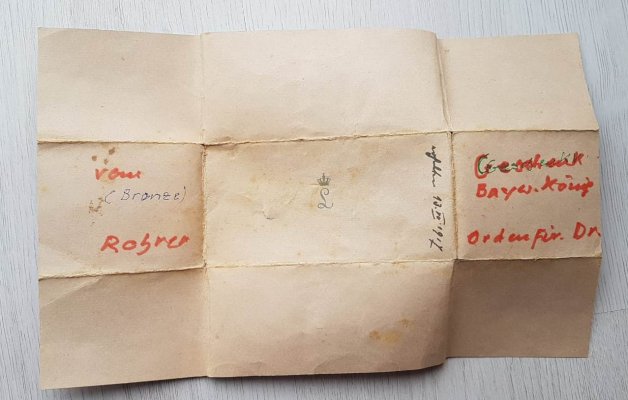 vom
(Bronze)
Rohrer
L
1917
Geschenk
Bayer. König
Orden für. Dr.